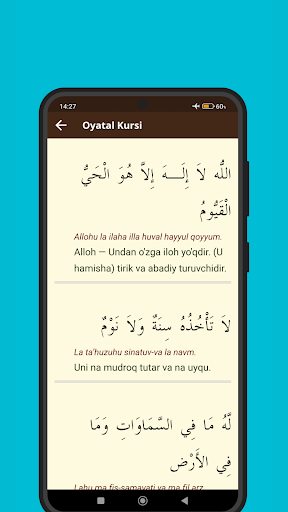 14:27
Oyatal Kursi
اللّٰه لاَ إِلَـــهَ إِلاَّ هُوَ الْحَيُّ
الْقَيُّومُ
Allohu la ilaha illa huval hayyul qoyyum.
Alloh — Undan o'zga iloh yo'qdir. (U
hamisha) tirik va abadiy turuvchidir.
لاَ تَأْخُذُهُ سِنَةٌ وَلاَ نَوْمٌ
La ta'huzuhu sinatuv-va la navm.
Uni na mudroq tutar va na uyqu.
لَّهُ مَا فِي السَّمَاوَاتِ وَمَا
فِي الأَرْضِ
Lahu ma fis-samavati va ma fil arz